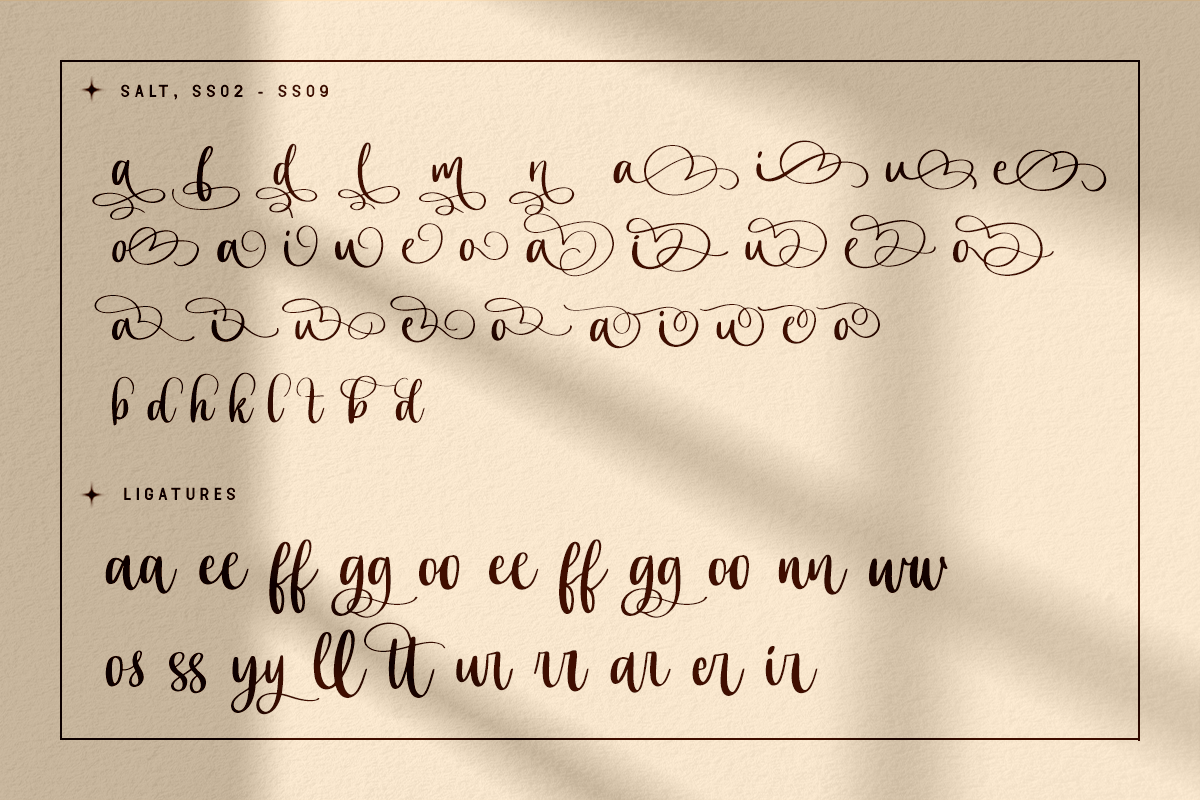 SALT, SS02 - SS09
a f d l m n a i u e
o a i u e o a i u e o
a i u e o a i u e o
b d h k l t b d
LIGATURES
aa ee ff gg oo ee ff gg oo nn uu
os ss yy ll tt ur rr ar er ir